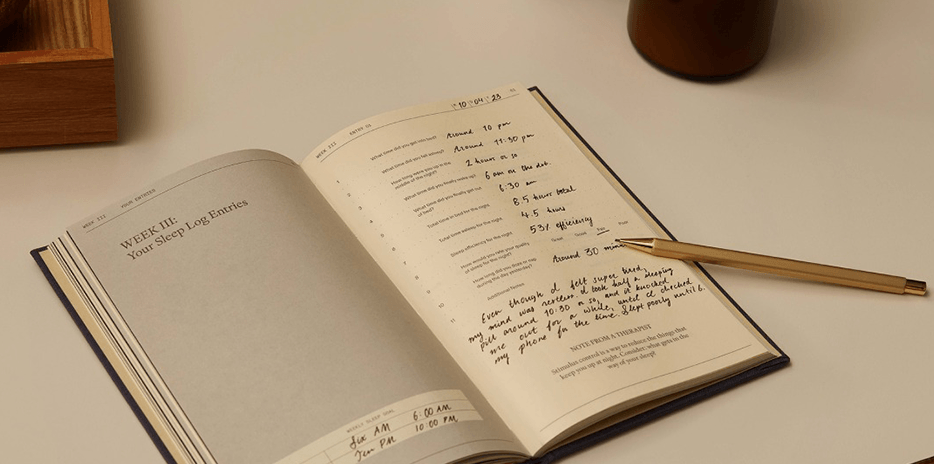 WEEK III
YOUR ENTRIES
WEEK III:
Your Sleep Log Entries
WEEKLY SLEEP GOAL
Six AM 6:00 AM
Ten PM 10:00 PM
WEEK III
ENTRY
10 04 23
1 What time did you get into bed? Around 10 pm
2 What time did you fall asleep? Around 11:30 pm
3 How long were you up in the
middle of the night? 2 hours or so
4 What time did you finally wake up? 6 am on the dot.
5 What time did you finally get out
of bed? 6:30 am
6 Total time in bed for the night 8.5 hours total
7 Total time asleep for the night 4.5 hours
8 Sleep efficiency for the night 53% efficiency
9 How would you rate your quality
of sleep for the night? Great Good Fair Poor
10 How long did you doze or nap
during the day yesterday? Around 30
11 Additional Notes
Even though I felt super tired,
my mind was restless. I took half a sleeping
pill around 10:30 or so, and it knocked
me out for a while, until I checked
my phone for the time. Slept poorly until 6.
NOTE FROM A THERAPIST
Stimulus control is a way to reduce the things that
keep you up at night. Consider: what gets in the
way of your sleep?